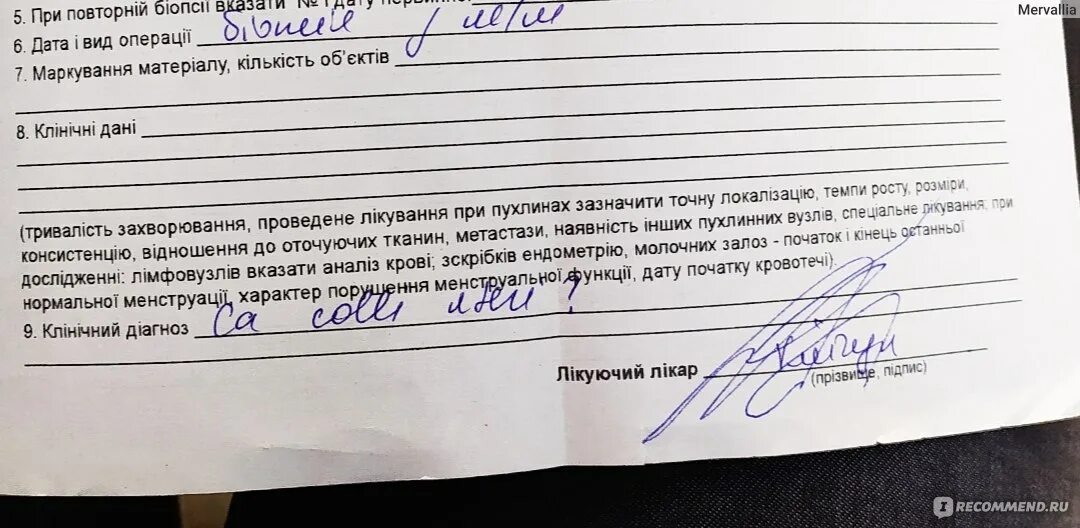 Mervallia
5. При повторній біопсії вказати № і дату
6. Дата і вид операції біопсія ш/м
7. Маркування матеріалу, кількість об'єктів
8. Клінічні дані
(тривалість захворювання, проведене лікування при пухлинах зазначити точну локалізацію, темпи росту, розміри,
консистенцію, відношення до оточуючих тканин, метастази, наявність інших пухлинних вузлів, спеціальне лікування; при
дослідженні: лімфовузлів вказати аналіз крові; зскрібків ендометрію, молочних залоз - початок і кінець останньої
нормальної менструації, характер порушення менструальної функції, дату початку кровотечі).
9. Клінічний діагноз Ca colli uteri ?
Лікуючий лікар
(прізвище, підпис)
IRECOMMEND.RU